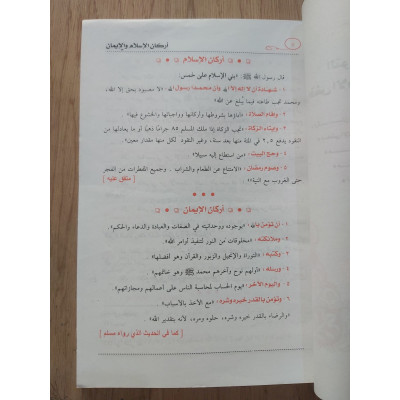 أركان الإسلام والإيمان
أركان الإسلام
قال رسول الله ﷺ: «بني الإسلام على خمس:
١ - شهادة أن لا إله إلا الله وأن محمدا رسول الله: «لا معبود بحق إلا الله،
ومحمد تجب طاعته فيما يبلغ عن الله»
٢ - وإقام الصلاة: «أداؤها بشروطها وأركانها وواجباتها والخشوع فيها»
٣ - وإيتاء الزكاة: «تجب الزكاة إذا ملك المسلم ٨٥ جرامًا ذهبًا أو ما يعادلها من
النقود يدفع ٢,٥ في المئة منها بعد سنة، وغير النقود لكل منها مقدار معين»
٤ - وحج البيت: «من استطاع إليه سبيلا»
٥ - وصوم رمضان: «الامتناع عن الطعام والشراب وجميع المفطرات من الفجر
حتى الغروب مع النية» [ متفق عليه ]
أركان الإيمان
١ - أن تؤمن بالله: «بوجوده ووحدانيته في الصفات والعبادة والدعاء والحكم»
٢ - وملائكته: «مخلوقات من النور لتنفيذ أوامر الله»
٣ - وكتبه: «التوراة والإنجيل والزبور والقرآن وهو أفضلها»
٤ - ورسله: «أولهم نوح وآخرهم محمد ﷺ وهو خاتمهم»
٥ - واليوم الآخر: «يوم الحساب لمحاسبة الناس على أعمالهم ومجازاتهم»
٦ - وتؤمن بالقدر خيره وشره: «مع الأخذ بالأسباب»
«والرضاء بالقدر خيره وشره، حلوه ومره، لأنه بتقدير الله»
[ كما في الحديث الذي رواه مسلم ]